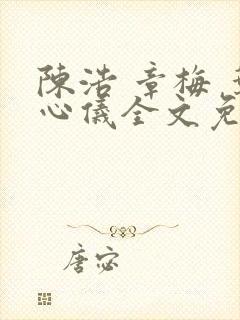 陳浩 章梅
心儀全文免
唐宓